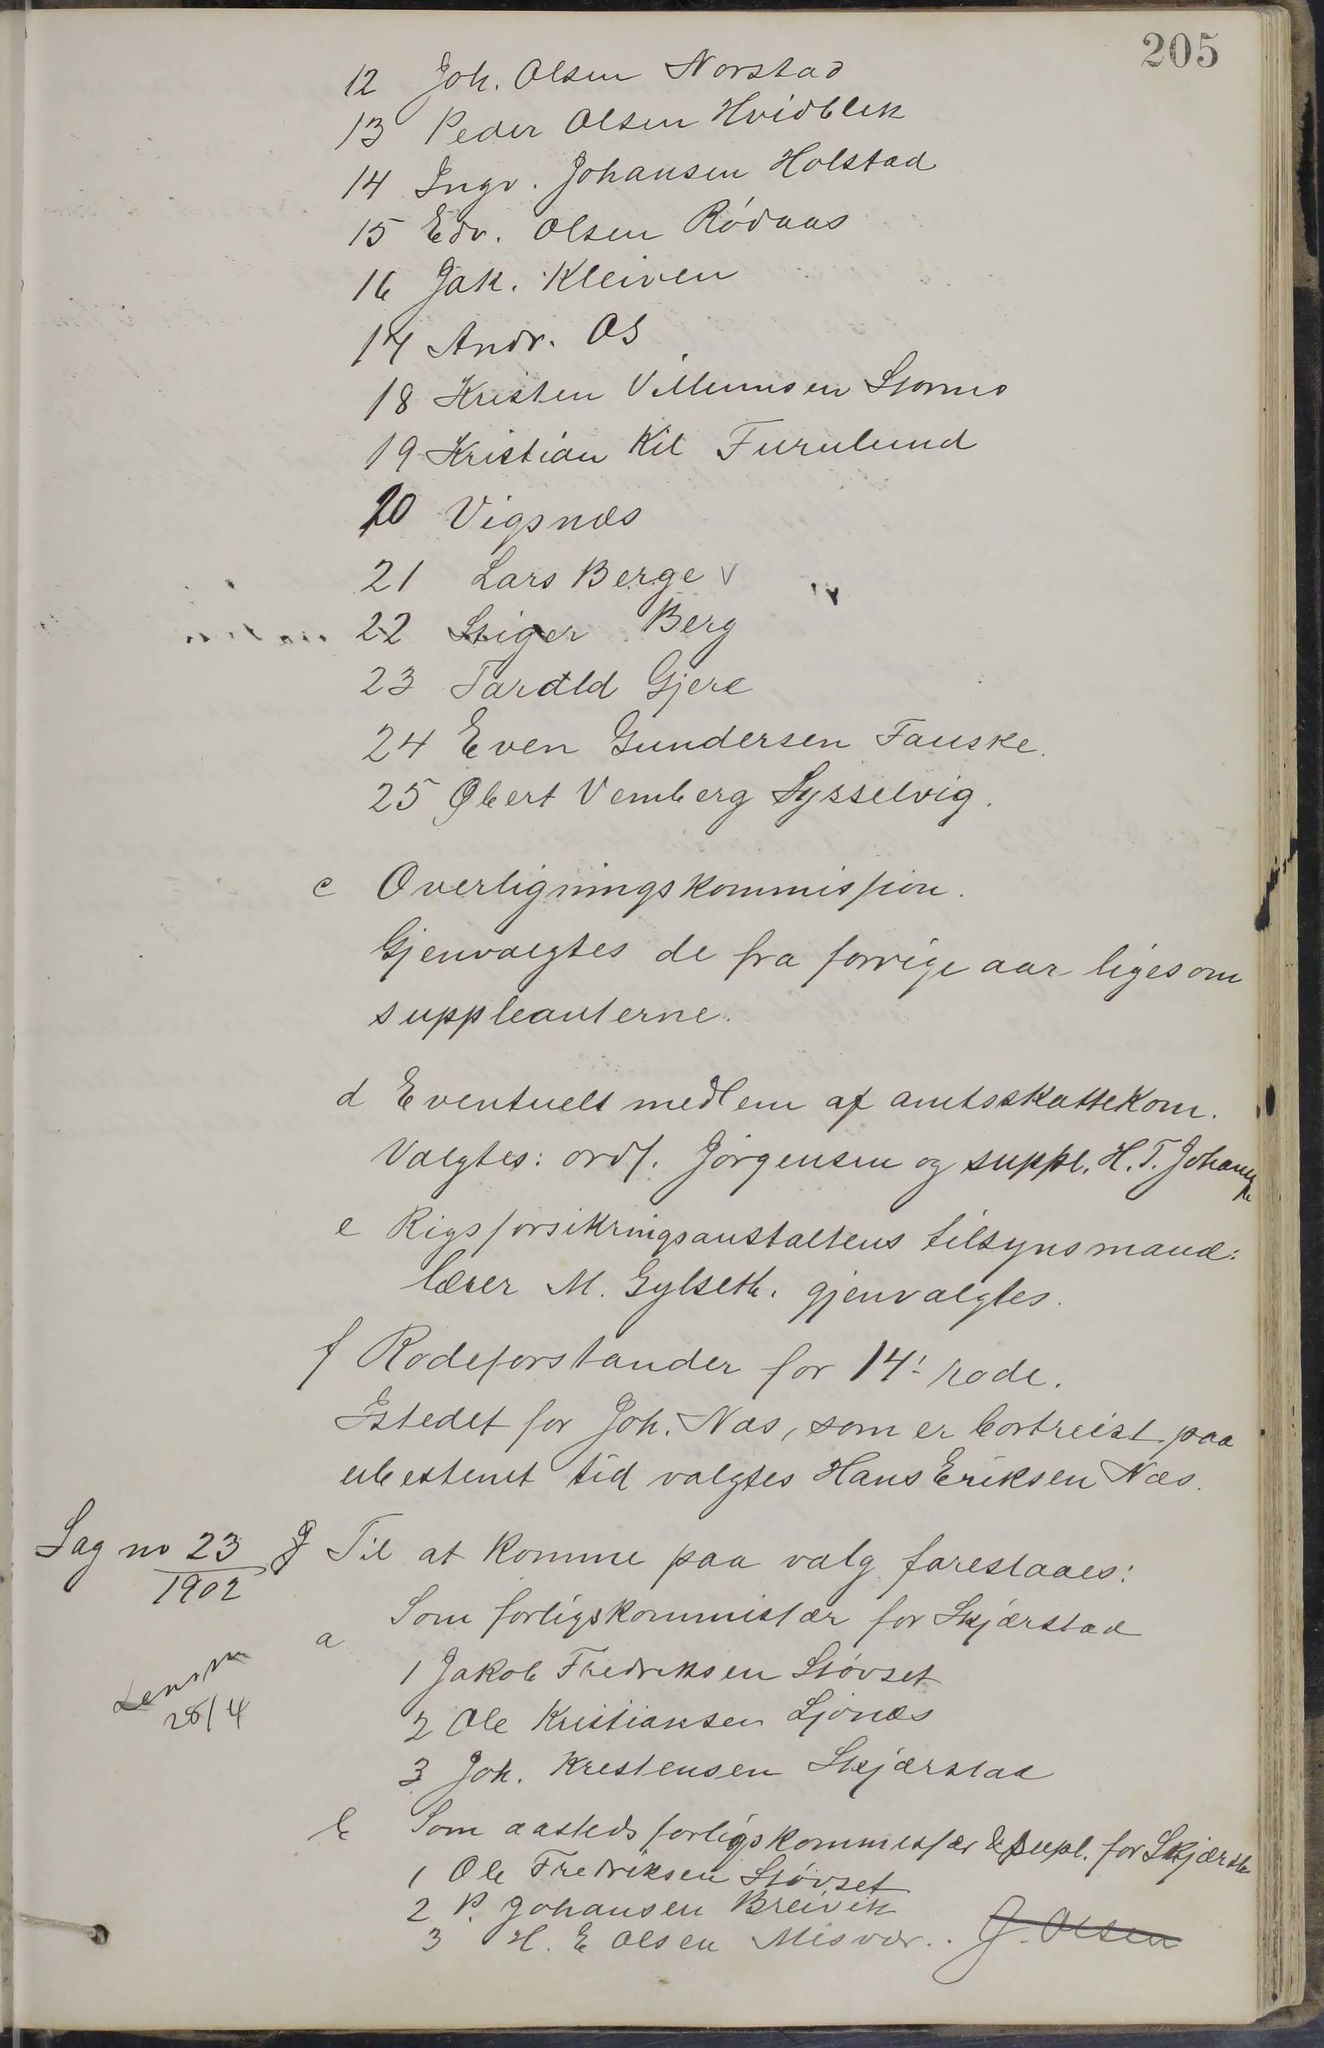 205
12 Joh. Olsen Norstad
13 Peder Olsen Hvidblik
14 Ingv. Johansen Holstad
15 Edv. Olsen Rødaas
16 Jak. Kleiven
17 Andr. Os
18 Kristen Villumsen Stormo
19 Kristian Kil Furulund
20 Vigsnæs
21 Lars Berge v
22 Stiger Berg
23 Tarald Gjere
24 Even Gundersen Fauske.
25 Obert Vemberg Sysselvig.
c Overligningskommission.
Gjenvalgtes de fra forrige aar ligesom
suppleanterne.
d Eventuelt medlem af amtsskattekom.
Valgtes: ordf. Jørgensen og suppl. H. T. Johansen
e Rigsforsikringsanstaltens tilsynsmand:
lærer M. Gylseth. gjenvalgtes.
f Rodeforstander for 14' rode.
Istedet for Joh. Næs, som er bortreist paa
ubestemt tid valgtes Hans Eriksen Næs.
Sag no 23
1902
g Til at komme paa valg foreslaaes:
a Som forligskommisær for Skjærstad
1 Jakob Fredriksen Støvset
28/4
2 Ole Kristiansen Ljønæs
3 Joh. Kristensen Skjærstad
b Som aasteds forligskommissær & supl. for Skjærst
1 Ole Fredriksen Støvset
2 P. Johansen Breivik
3 H. E Olsen Misvær.. J. Olsen